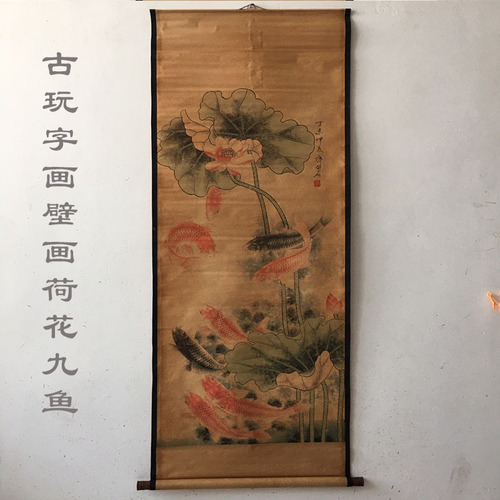 古玩字画壁画荷花九鱼